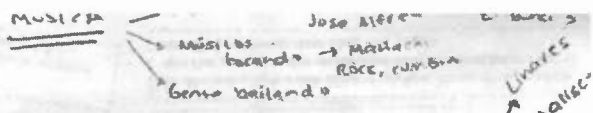 MUSICA
Jose Alfre
Músicos tocando → Mariachi
Rock, cumbia
Gente bailando
Linares